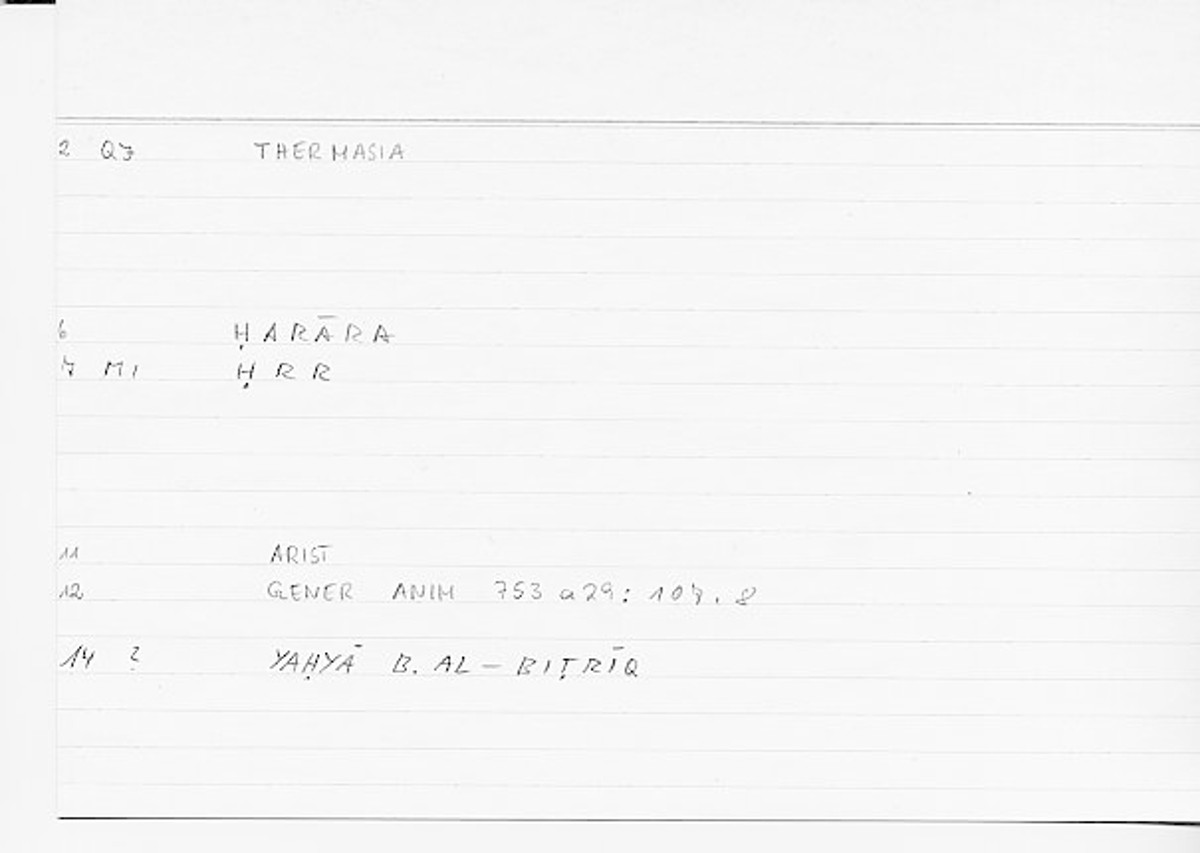 2 QZ THERMASIA
6 ḤARĀRA
7 M1 ḤRR
11 ARIST
12 GENER ANIM 753 a29: 107.8
14 ? YAḤYĀ B. AL-BIṬRĪQ